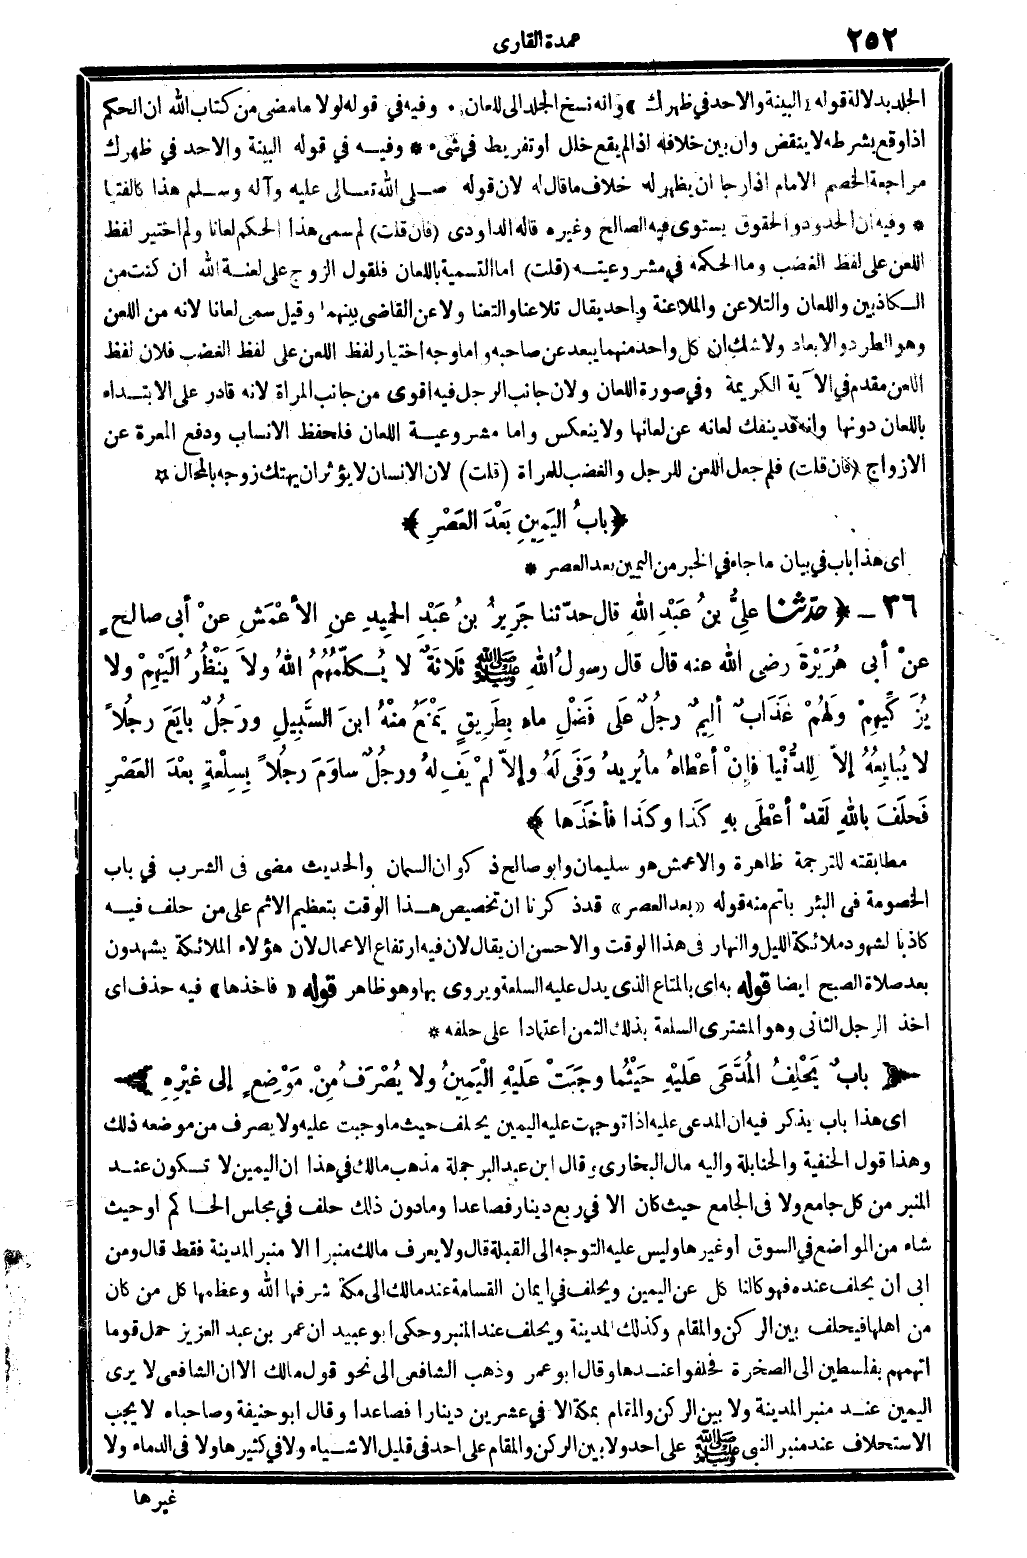 ٢٥٢
عمدة القارى
الجلد بدلالة قوله «البينة والا حد في ظهرك» وانه نسخ الجلد الى اللعان. وفيه في قوله لولا ما مضى من كتاب الله ان الحكم
اذا وقع بشرطه لا ينقض وان بين خلافه اذا لم يقع خلل او تفريط في شىء * وفيه في قوله البينة والا حد في ظهرك
مراجعة الخصم الامام اذا رجا ان يظهر له خلاف ما قال له لان قوله صلى الله تعالى عليه وآله وسلم هذا كالفتيا
* وفيه ان الحدود والحقوق يستوى فيه الصالح وغيره قاله الداودى (فان قلت) لم سمى هذا الحكم لعانا ولم اختير لفظ
اللعن على لفظ الغضب وما الحكمة في مشروعيته (قلت) اما التسمية باللعان فلقول الزوج على لعنة الله ان كنت من
الكاذبين واللعان والتلاعن والملاعنة واحد يقال تلاعنا والتعنا ولا عن القاضى بينهما وقيل سمى لعانا لانه من اللعن
وهو الطرد والابعاد ولا شك ان كل واحد منهما يبعد عن صاحبه واما وجه اختيار لفظ اللعن على لفظ الغضب فلان لفظ
اللعن مقدم في الآية الكريمة وفي صورة اللعان ولان جانب الرجل فيه اقوى من جانب المراة لانه قادر على الابتداء
باللعان دونها وانه قد ينفك لعانه عن لعانها ولا ينعكس واما مشروعية اللعان فلحفظ الانساب ودفع المعرة عن
الازواج (فان قلت) فلم جعل اللعن للرجل والغضب للمراة (قلت) لان الانسان لا يؤثر ان يهتك زوجه بالمحال *
﴿بابُ اليَمِينِ بَعْدَ العَصْرِ﴾
اى هذا باب في بيان ما جاء في الخبر من اليمين بعد العصر *
٣٦ - ﴿حدّثنا عَلِيُّ بنُ عَبْدِ اللهِ قال حدّثنا جَرِيرُ بنُ عَبْدِ الحَمِيدِ عنِ الأَعْمَشِ عنْ أبى صالحٍ
عنْ أبى هُرَيْرَةَ رضى الله عنه قال قال رسولُ اللهِ ﷺ ثَلاثَةٌ لا يُكلّمُهُمُ اللهُ ولاَ يَنْظُرُ الَيْهِمْ ولا
يُزَكِّيهِمْ ولَهُمْ عَذَابٌ أليمٌ رجلٌ عَلَى فَضْلِ ماءٍ بِطَرِيقٍ يَمْنَعُ مِنْهُ ابنَ السَّبِيلِ ورَجُلٌ بايَعَ رجُلاً
لا يُبايِعُهُ إلاّ لِلدُّنْيا فإنْ أعْطاهُ ما يُريدُ وَفَى لَهُ وإلاّ لمْ يَفِ لهُ ورجُلٌ ساوَمَ رجُلاً بِسِلْعَةٍ بعْدَ العَصْرِ
فَحلَفَ باللهِ لَقدْ أعْطَى بهِ كَذَا وكَذَا فأخَذَها﴾
مطابقته للترجمة ظاهرة والاعمش هو سليمان وابو صالح ذكوان السمان والحديث مضى فى الشرب في باب
الخصومة فى البئر باتم منه قوله «بعد العصر» قد ذكرنا ان تخصيص هذا الوقت بتعظيم الاثم على من حلف فيه
كاذبا لشهود ملائكة الليل والنهار فى هذا الوقت والاحسن ان يقال لان فيه ارتفاع الاعمال لان هؤلاء الملائكة يشهدون
بعد صلاة الصبح ايضا قوله به اى بالمتاع الذى يدل عليه السلعة ويروى بها وهو ظاهر قوله «فاخذها» فيه حذف اى
اخذ الرجل الثانى وهو المشترى السلعة بذلك الثمن اعتمادا على حلفه *
﴿بابٌ يَحْلِفُ المُدَّعَى عَلَيْهِ حَيْثُما وجَبَتْ عَلَيْهِ اليَمِينُ ولا يُصْرَفُ مِنْ مَوْضِعٍ إلى غيْرِهِ﴾
اى هذا باب يذكر فيه ان المدعى عليه اذا توجهت عليه اليمين يحلف حيث ما وجبت عليه ولا يصرف من موضعه ذلك
وهذا قول الحنفية والحنابلة واليه مال البخارى، قال ابن عبد البر جملة مذهب مالك في هذا ان اليمين لا تكون عند
المنبر من كل جامع ولا فى الجامع حيث كان الا في ربع دينار فصاعدا وما دون ذلك حلف في مجلس الحاكم او حيث
شاء من المواضع في السوق او غيرها وليس عليه التوجه الى القبلة قال ولا يعرف مالك منبرا الا منبر المدينة فقط قال ومن
ابى ان يحلف عنده فهو كالناكل عن اليمين ويحلف في ايمان القسامة عند مالك الى مكة شرفها الله وعظمها كل من كان
من اهلها فيحلف بين الركن والمقام وكذلك المدينة ويحلف عند المنبر وحكى ابو عبيد ان عمر بن عبد العزيز حمل قوما
اتهمهم بفلسطين الى الصخرة فحلفوا عندها وقال ابو عمر وذهب الشافعى الى نحو قول مالك الا ان الشافعى لا يرى
اليمين عند منبر المدينة ولا بين الركن والمقام بمكة الا في عشرين دينارا فصاعدا وقال ابو حنيفة وصاحباه لا يجب
الاستحلاف عند منبر النبى ﷺ على احد ولا بين الركن والمقام على احد فى قليل الاشياء ولا في كثيرها ولا فى الدماء ولا
غيرها